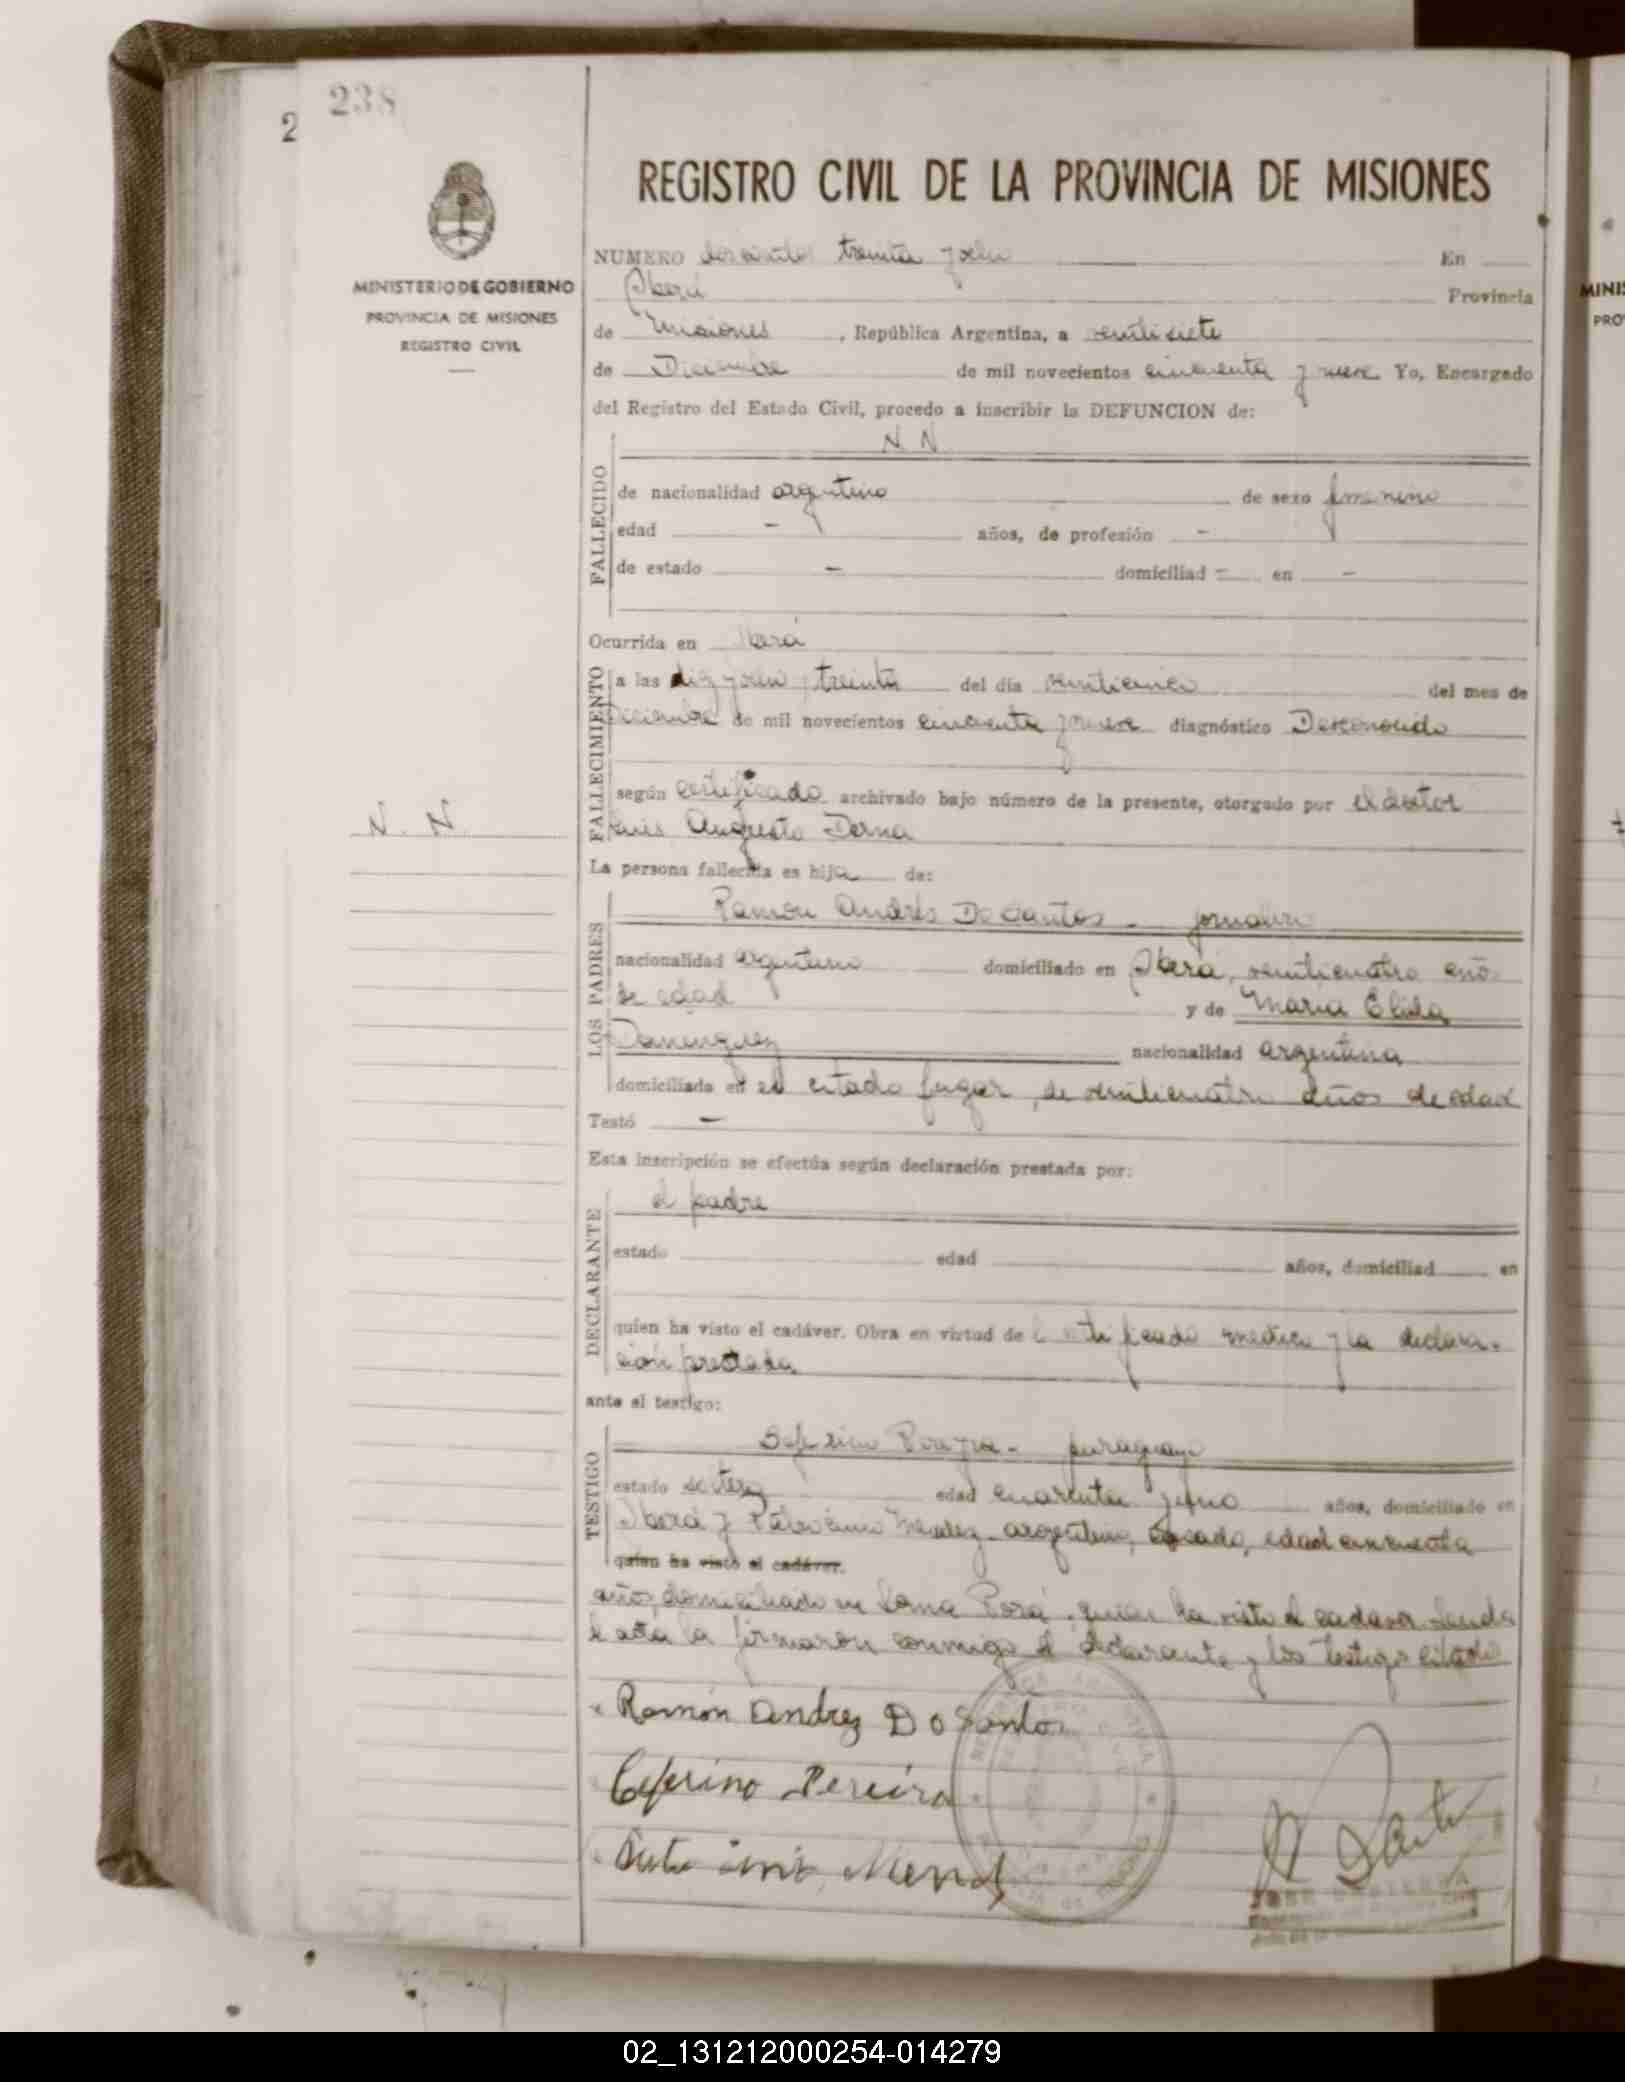 238
2
REGISTRO CIVIL DE LA PROVINCIA DE MISIONES
MINISTERIO DE GOBIERNO
PROVINCIA DE MISIONES
REGISTRO CIVIL
NUMERO doscientos treinta y ocho En
Oberá Provincia
de Misiones, República Argentina, a veintisiete
de Diciembre de mil novecientos cincuenta y nueve Yo, Encargado
del Registro del Estado Civil, procedo a inscribir la DEFUNCION de:
N. N.
FALLECIDO
de nacionalidad argentino de sexo femenino
edad - años, de profesión -
de estado - domiciliad - en -
Ocurrida en Oberá
FALLECIMIENTO
a las diez y ocho y treinta del día veinticinco del mes de
Diciembre de mil novecientos cincuenta y nueve diagnóstico Desconocido
según certificado archivado bajo número de la presente, otorgado por el doctor
Luis Augusto Derna
N. N.
La persona fallecida es hija de:
LOS PADRES
Ramón Andrés Do Santos - jornalero
nacionalidad argentino domiciliado en Oberá, veinticuatro año
de edad y de María Elida
Dominguez nacionalidad argentina
domiciliada en el citado lugar, de veinticuatro años de edad
Testó -
Esta inscripción se efectúa según declaración prestada por:
DECLARANTE
el padre
estado edad años, domiciliad en
quien ha visto el cadáver. Obra en virtud de certificado medico y la declara-
ción prestada
ante el testigo:
TESTIGO
Seferino Pereyra - paraguayo
estado soltero edad cuarenta y uno años, domiciliado en
Oberá y Patrocinio Mendez argentino, casado, edad cincuenta
quien ha visto el cadáver.
años, domiciliado en Loma Porá, quien ha visto el cadaver. Leuda
el acta la firmaron conmigo el declarante y los testigo citado
Ramón Andrez Do Santos
Ceferino Pereira
MINIS
PRO
02_131212000254-014279